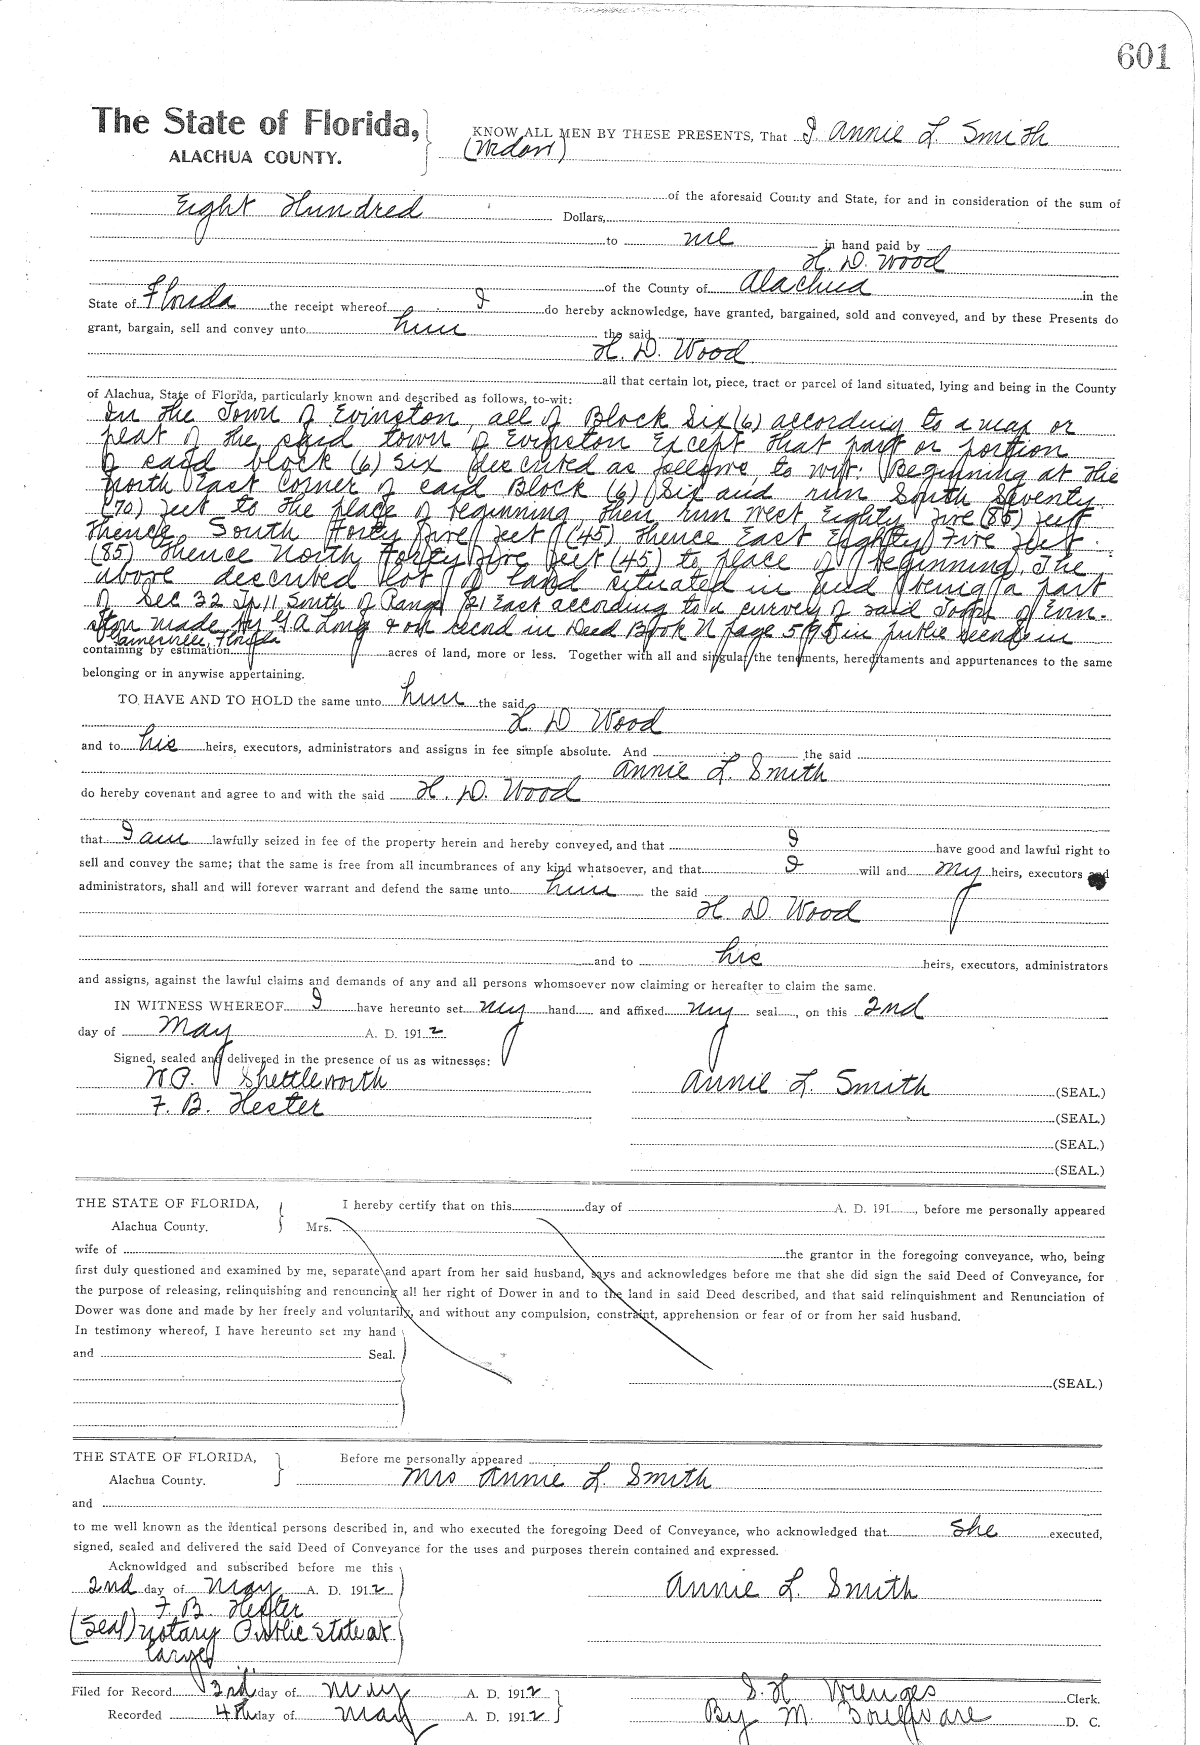 601
The State of Florida,
ALACHUA COUNTY.
KNOW ALL MEN BY THESE PRESENTS, That I Annie L. Smith
(Widow)
of the aforesaid County and State, for and in consideration of the sum of
Eight Hundred Dollars,
to me in hand paid by
H. D. Wood
of the County of Alachua in the
State of Florida the receipt whereof I do hereby acknowledge, have granted, bargained, sold and conveyed, and by these Presents do
grant, bargain, sell and convey unto him the said
H. D. Wood
all that certain lot, piece, tract or parcel of land situated, lying and being in the County
of Alachua, State of Florida, particularly known and described as follows, to-wit:
In the Town of Evinston, all of Block Six (6) according to a map or
plat of the said town of Evinston Except that part or portion
of said block (6) Six described as follows, to wit: Beginning at the
North East Corner of said Block (6) Six and run South Seventy
(70) feet to the place of beginning then run West Eighty five (85) feet
thence South Forty five feet (45) thence East Eighty Five feet
(85) thence North Forty five feet (45) to place of beginning. The
above described lot of land situated in and being a part
of Sec 32 Tp 11 South of Range 21 East according to a survey of said Town of Evin-
ston made by G A Long & on record in Deed Book N page 595 in public records in
Gainesville, Florida
containing by estimation acres of land, more or less. Together with all and singular the tenements, hereditaments and appurtenances to the same
belonging or in anywise appertaining.
TO HAVE AND TO HOLD the same unto him the said
H. D. Wood
and to his heirs, executors, administrators and assigns in fee simple absolute. And the said
Annie L. Smith
do hereby covenant and agree to and with the said H. D. Wood
that I am lawfully seized in fee of the property herein and hereby conveyed, and that I have good and lawful right to
sell and convey the same; that the same is free from all incumbrances of any kind whatsoever, and that I will and my heirs, executors and
administrators, shall and will forever warrant and defend the same unto him the said
H. D. Wood
and to his heirs, executors, administrators
and assigns, against the lawful claims and demands of any and all persons whomsoever now claiming or hereafter to claim the same.
IN WITNESS WHEREOF I have hereunto set my hand and affixed my seal, on this 2nd
day of May A. D. 1912
Signed, sealed and delivered in the presence of us as witnesses:
W. P. Shettleworth
F. B. Hester
Annie L. Smith (SEAL.)
(SEAL.)
(SEAL.)
(SEAL.)
THE STATE OF FLORIDA,
Alachua County.
I hereby certify that on this day of A. D. 191 , before me personally appeared
Mrs.
wife of the grantor in the foregoing conveyance, who, being
first duly questioned and examined by me, separate and apart from her said husband, says and acknowledges before me that she did sign the said Deed of Conveyance, for
the purpose of releasing, relinquishing and renouncing all her right of Dower in and to the land in said Deed described, and that said relinquishment and Renunciation of
Dower was done and made by her freely and voluntarily, and without any compulsion, constraint, apprehension or fear of or from her said husband.
In testimony whereof, I have hereunto set my hand
and Seal.
(SEAL.)
THE STATE OF FLORIDA,
Alachua County.
Before me personally appeared
Mrs Annie L. Smith
and
to me well known as the identical persons described in, and who executed the foregoing Deed of Conveyance, who acknowledged that she executed,
signed, sealed and delivered the said Deed of Conveyance for the uses and purposes therein contained and expressed.
Acknowldged and subscribed before me this
2nd day of May A. D. 1912
F. B. Hester
(Seal) Notary Public State at
large
Annie L. Smith
Filed for Record 3rd day of May A. D. 1912
Recorded 4th day of May A. D. 1912
S. H. Wienges Clerk.
By M. Boulware D. C.